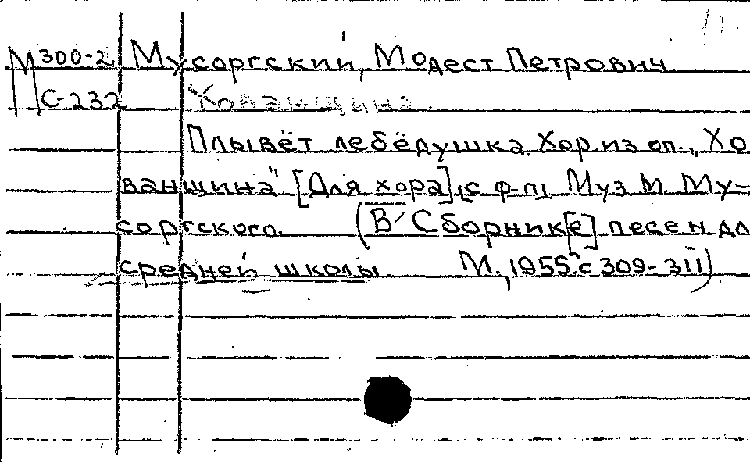 М 300-2 Мусоргский, Модест Петрович
С-232 Хованщина.
Плывёт лебёдушка. Хор из оп. „Хо
ванщина" [Для хора] с ф-п. Муз М. Му-
соргского. (В Сборник[е] песен дл
средней школы М., 1955. с 309-311)